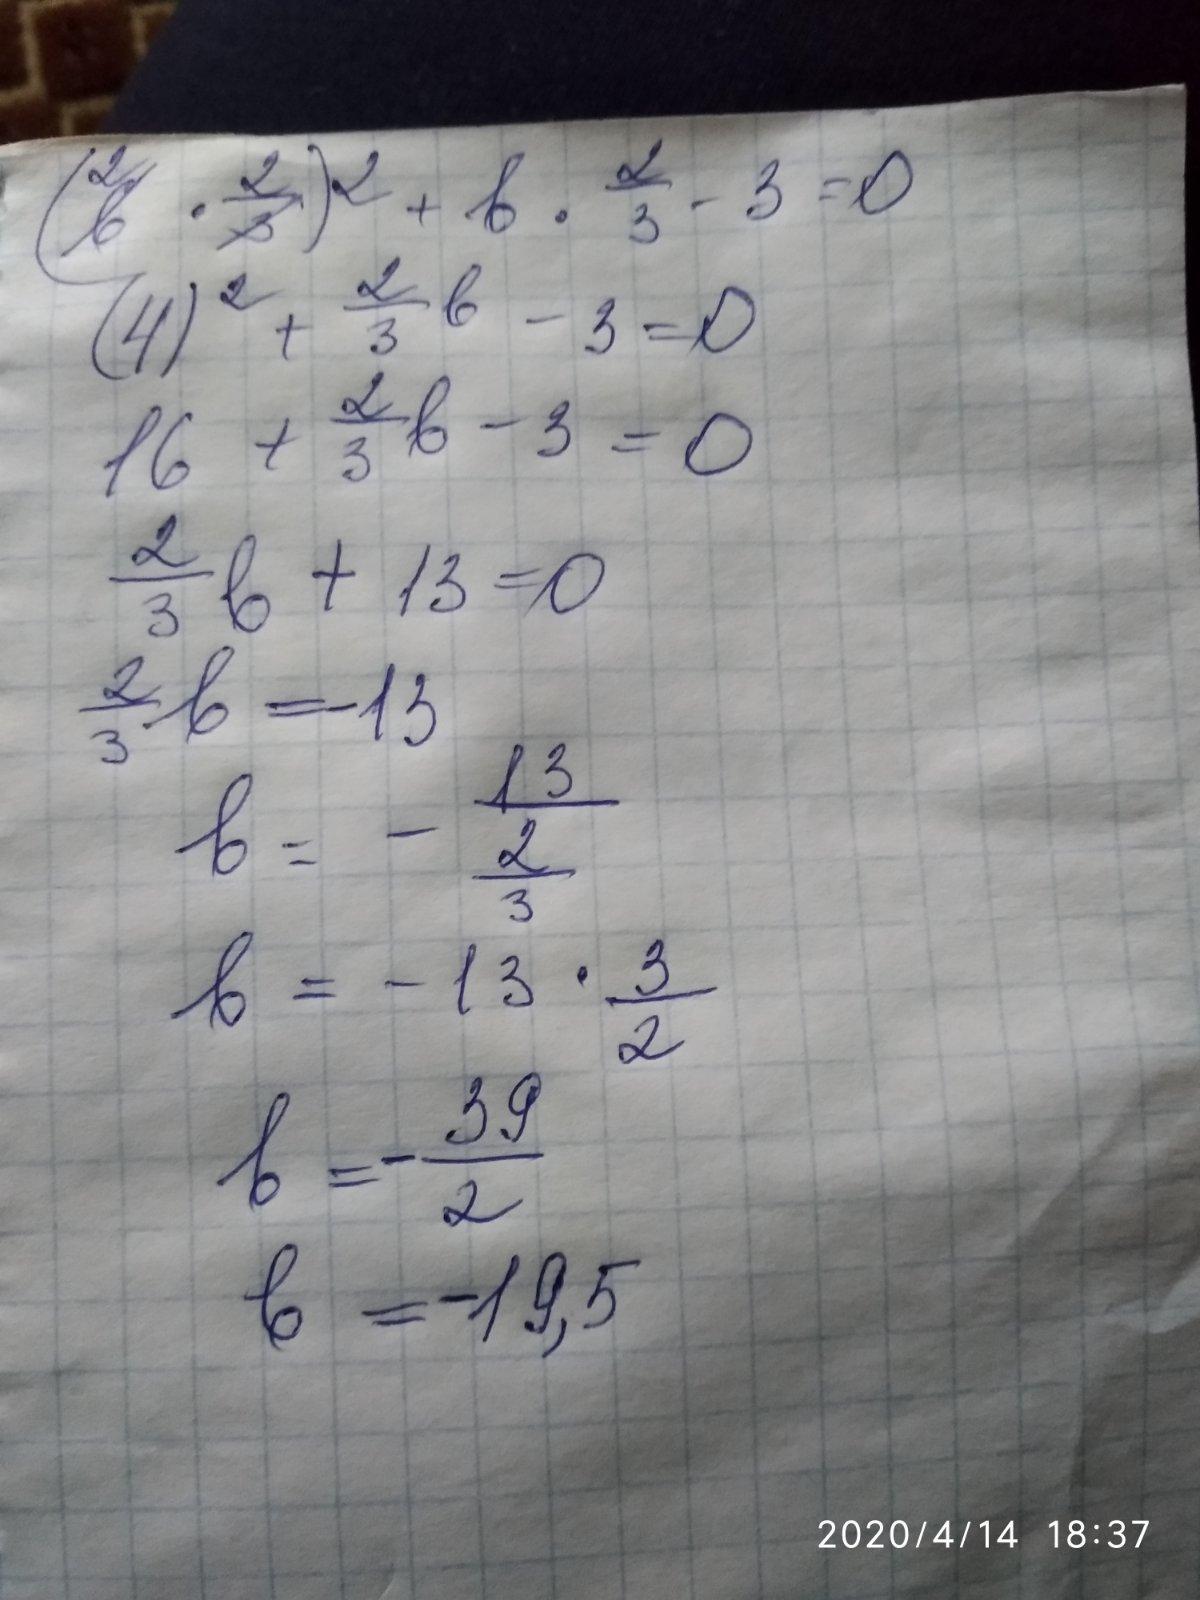 (6̸² · 2/3̸)² + b · 2/3 - 3 = 0
(4)² + 2/3 b - 3 = 0
16 + 2/3 b - 3 = 0
2/3 b + 13 = 0
2/3 b = -13
b = - 13/(2/3)
b = -13 · 3/2
b = - 39/2
b = -19,5
2020/4/14 18:37